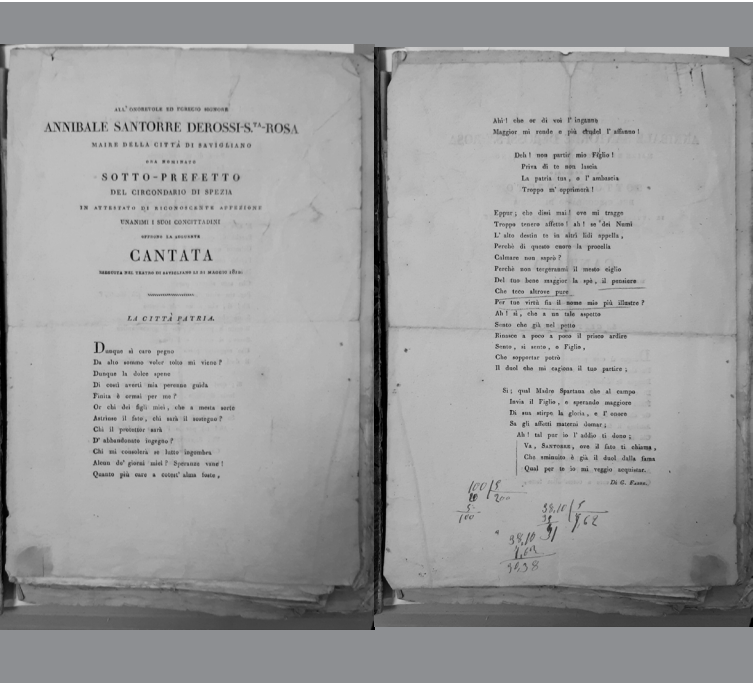 ALL' ONOREVOLE ED EGREGIO SIGNORE
ANNIBALE SANTORRE DEROSSI-S.TA-ROSA
MAIRE DELLA CITTÀ DI SAVIGLIANO
ORA NOMINATO
SOTTO-PREFETTO
DEL CIRCONDARIO DI SPEZIA
IN ATTESTATO DI RICONOSCENTE AFFEZIONE
UNANIMI I SUOI CONCITTADINI
OFFRONO LA SEGUENTE
CANTATA
ESEGUITA NEL TEATRO DI SAVIGLIANO LI 21 MAGGIO 1812.
LA CITTÀ PATRIA.
Dunque sì caro pegno
Da alto sommo voler tolto mi viene?
Dunque la dolce spene
Di così averti mia perenne guida
Finita è ormai per me?
Or chi dei figli miei, che a mesta sorte
Astrinse il fato, chi sarà il sostegno?
Chi il protettor sarà
D' abbandonato ingegno?
Chi mi consolerà se lutto ingombra
Alcun de' giorni miei? Speranze vane!
Quanto più care a cotest' alma foste,
Ahi! che or di voi l' inganno
Maggior mi rende e più crudel l' affanno!
Deh! non partir mio Figlio!
Priva di te non lascia
La patria tua, e l' ambascia
Troppo m' opprimerà!
Eppur; che dissi mai! ove mi tragge
Troppo tenero affetto! ah! se dei Numi
L' alto destin te in altri lidi appella,
Perchè di questo cuore la procella
Calmare non saprò?
Perchè non tergeranmi il mesto ciglio
Del tuo bene maggior la spè, il pensiero
Che teco altrove pure
Per tue virtù fia il nome mio più illustre?
Ah! sì, che a un tale aspetto
Sento che già nel petto
Rinasce a poco a poco il prisco ardire
Sento, sì sento, o Figlio,
Che sopportar potrò
Il duol che mi cagiona il tuo partire;
Sì; qual Madre Spartana che al campo
Invia il Figlio, e sperando maggiore
Di sua stirpe la gloria, e l' onore
Sa gli affetti materni domar;
Ah! tal pur io l' addio ti dono;
Va, SANTORRE, ove il fato ti chiama,
Che sminuito è già il duol dalla fama
Qual per te io mi veggio acquistar.
Di G. Eanna.
100 5
20 200
5
100
38,10 5
31 7,62
31
38,10
7,62